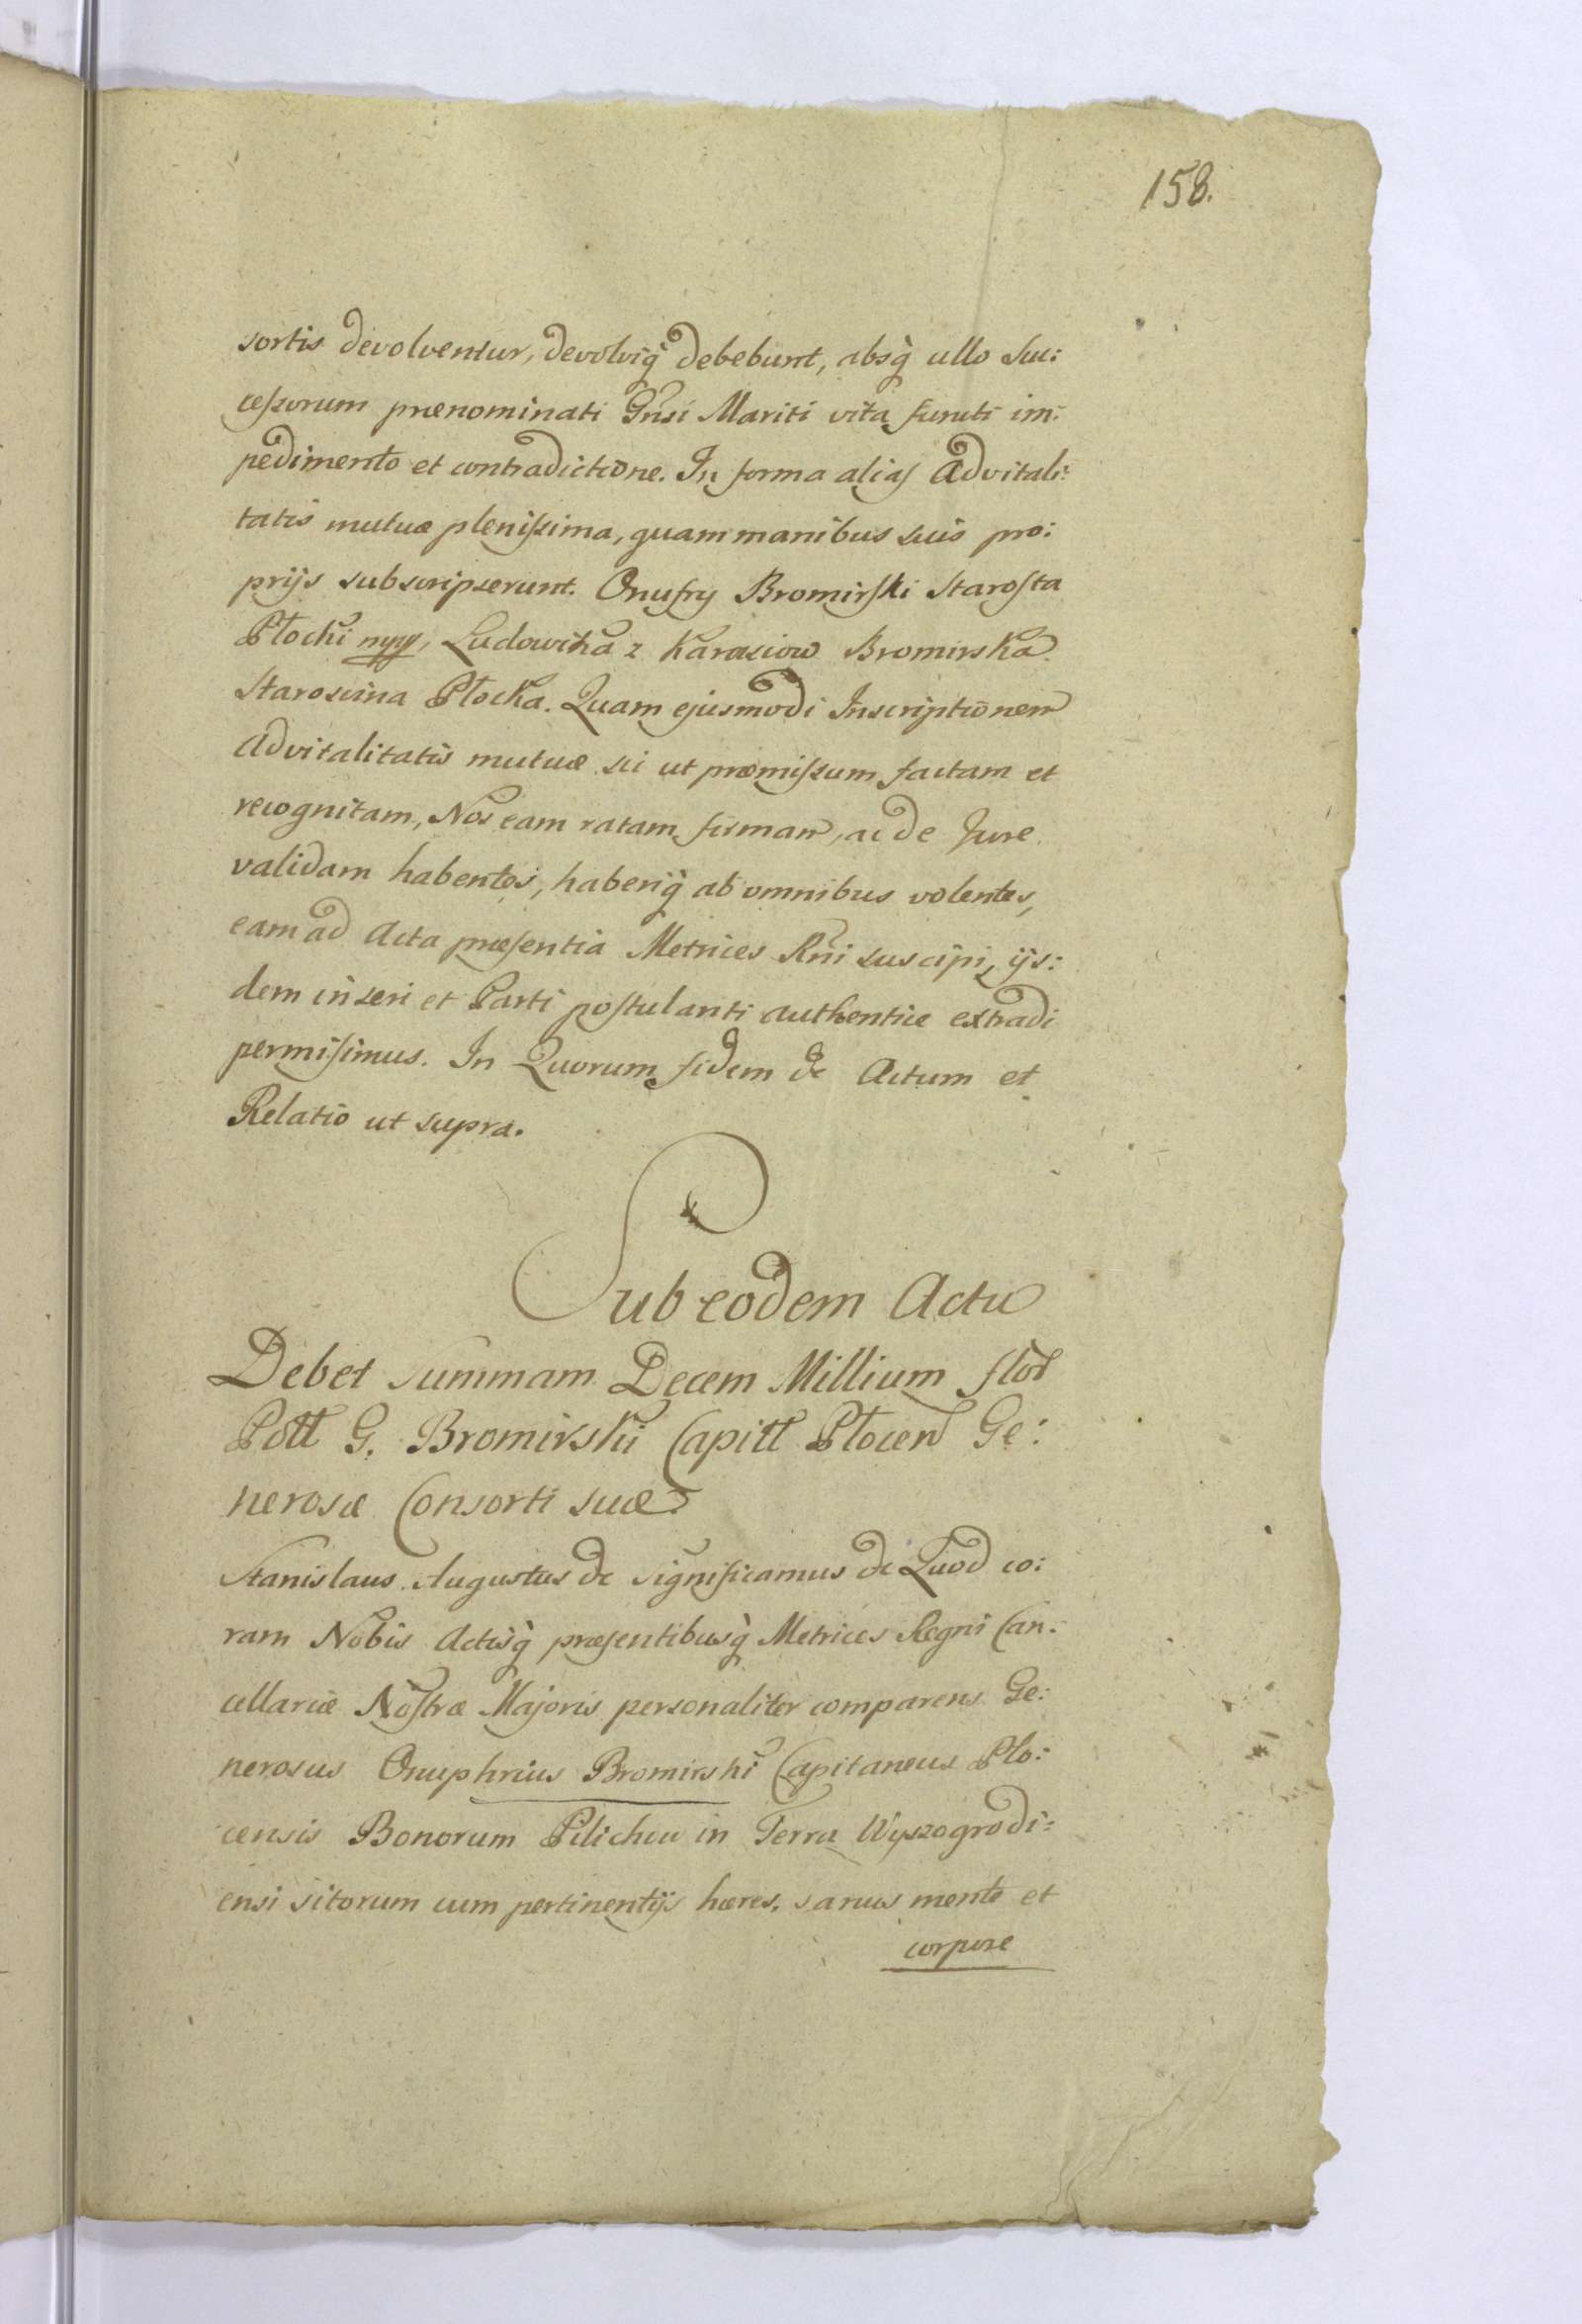 158.
sortis devolventur, devolviq̀ debebunt, absq̀ ullo Suc:
ceſsorum prænominati Gnsi Mariti vita functi im:
pedimento et contradictione. In forma aliaſ Advitali:
tatis mutuæ pleniſsima, quam manibus suis pro:
prijs subscripserunt. Onufry Bromirſki Staroſta
Płocki mpp, Ludowika z Karasiow Bromirska
Staroscina Płocka. Quam ejusmodi Inscriptionem
Advitalitatis mutuæ sic ut præmiſsum factam et
recognitam, Nos eam ratam firmam, ac de Jure
validam habentes, haberiq̀ ab omnibus volentes,
eam ad Acta præſentia Metrices Rni suscipi, ijs:
dem inseri et Parti poſtulanti authentice extradi
permiſimus. In Quorum fidem &c Actum et
Relatio ut supra.
Sub eodem Actu
Debet summam Decem Millium flor
Poll G. Bromirski Capitt Płocen Ge:
nerosæ Consorti suæ
Stanislaus Augustus &c significamus &c Quod co:
ram Nobis Actisq̀ præſentibusq̀ Metrices Regni Can:
cellariæ Noſtræ Majoris personaliter comparens Ge:
nerosus Onuphrius Bromirski Capitaneus Plo:
censis Bonorum Pilichow in Terra Wyszogrodi:
ensi sitorum cum pertinentijs hæres, sanus mente et
corpore